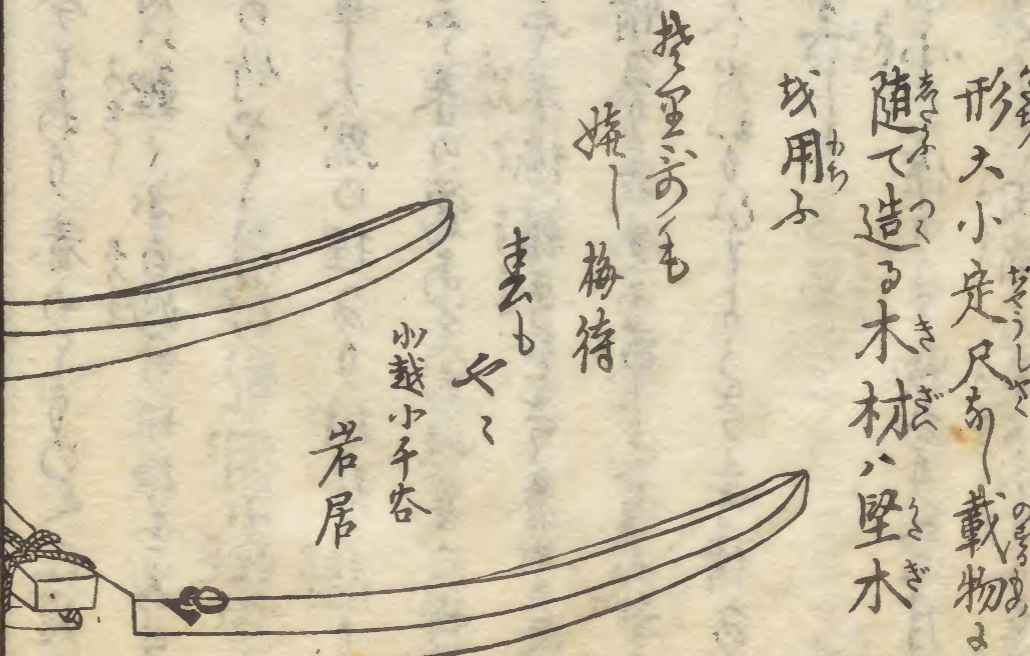 形大小定尺なし載物に
随て造る木材ハ堅木
を用ふ
そり哥も
嬉し梅待
春も
やゝ
北越小千谷
岩居